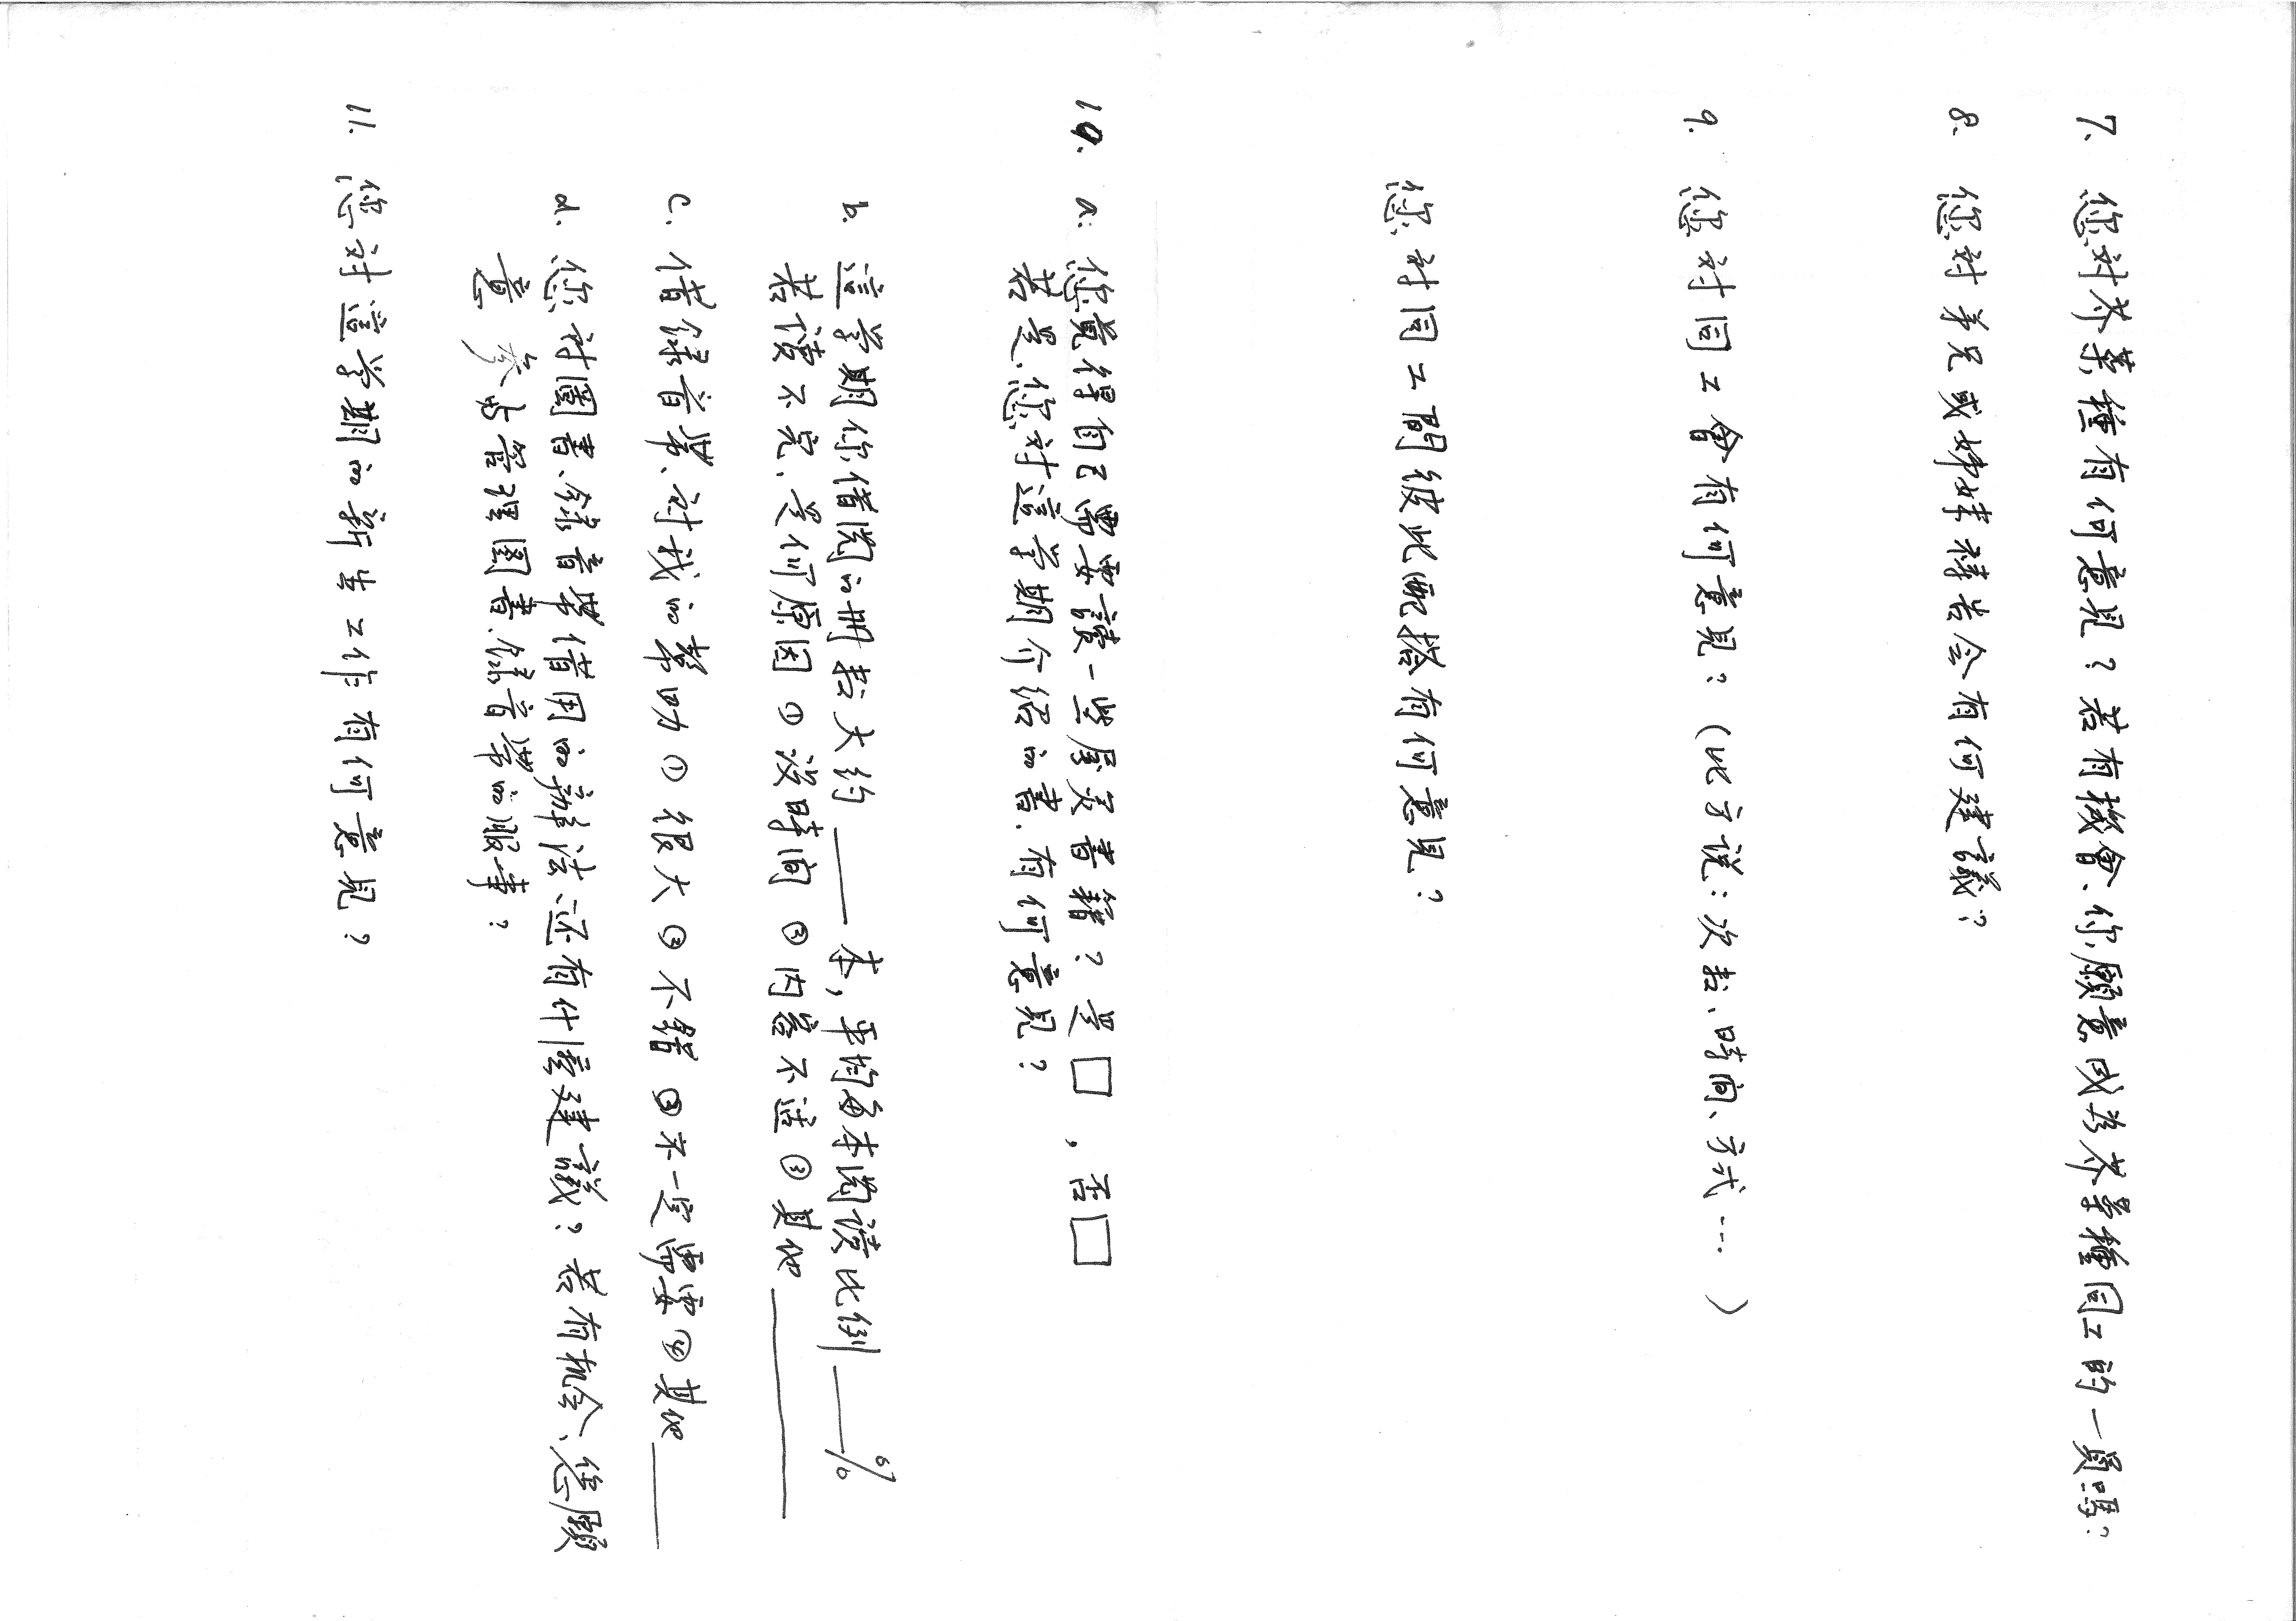 7. 您对芥菜種有何意見？若有機會、你願意成為芥菜種同工的一員嗎？
8. 您対弟兄或姊妹禱告会有何建議？
9. 您対同工會有何意見？（比方說：次数、時间、方式…）
您対同工間彼此配搭有何意見？
10. a. 您覺得自己需要讀一些屬灵書籍？是□，否□
若是、您対這学期介紹的書.有何意見？
b. 這学期你借閱的冊数大約____本，平均每本閱读比例____%
若读不完、是何原因 ①没時间 ②内容不适 ③其他____
c. 借録音帯、対我的幫助 ①很大 ②不錯 ③不一定需要 ④其他____
d. 您対圖書、錄音帯借用的辦法还有什麼建議？若有机会、您願
意参与管理圖書、錄音帯的服事？
11. 您対這学期的新生工作有何意見？